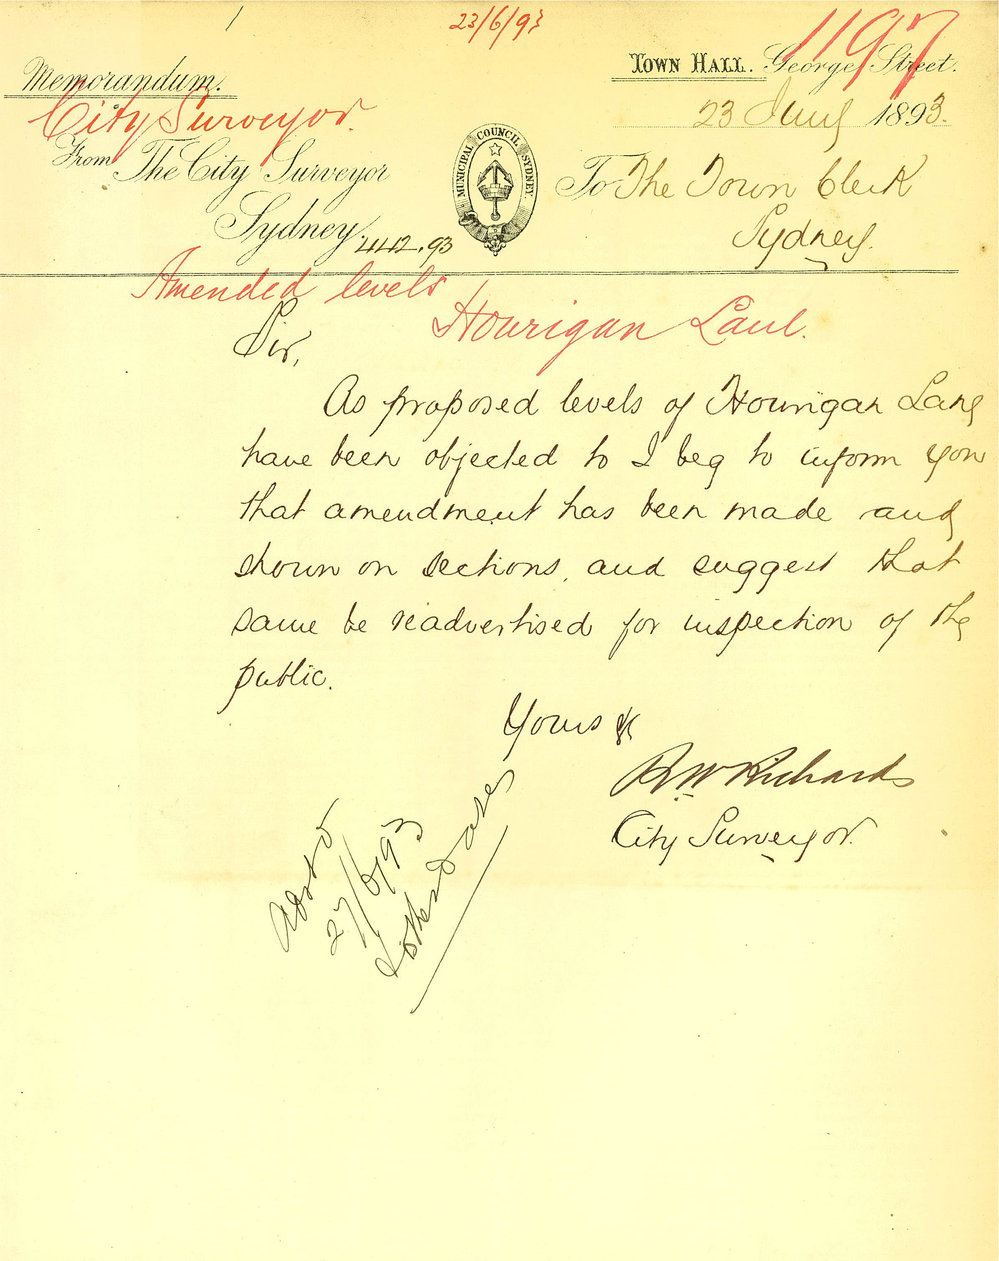 23/6/93
1197
Memorandum.
Town Hall. George Street.
City Surveyor.
23 June 1893.
From The City Surveyor
Sydney.
MUNICIPAL COUNCIL SYDNEY.
To The Town Clerk
Sydney.
Amended levels
Hourigan Lane.
Sir,
As proposed levels of Hourigan Lane
have been objected to I beg to inform you
that amendment has been made and
shown on sections, and suggest that
same be readvertised for inspection of the
public.
Yours &c
R W Richards
City Surveyor.
27/6/93